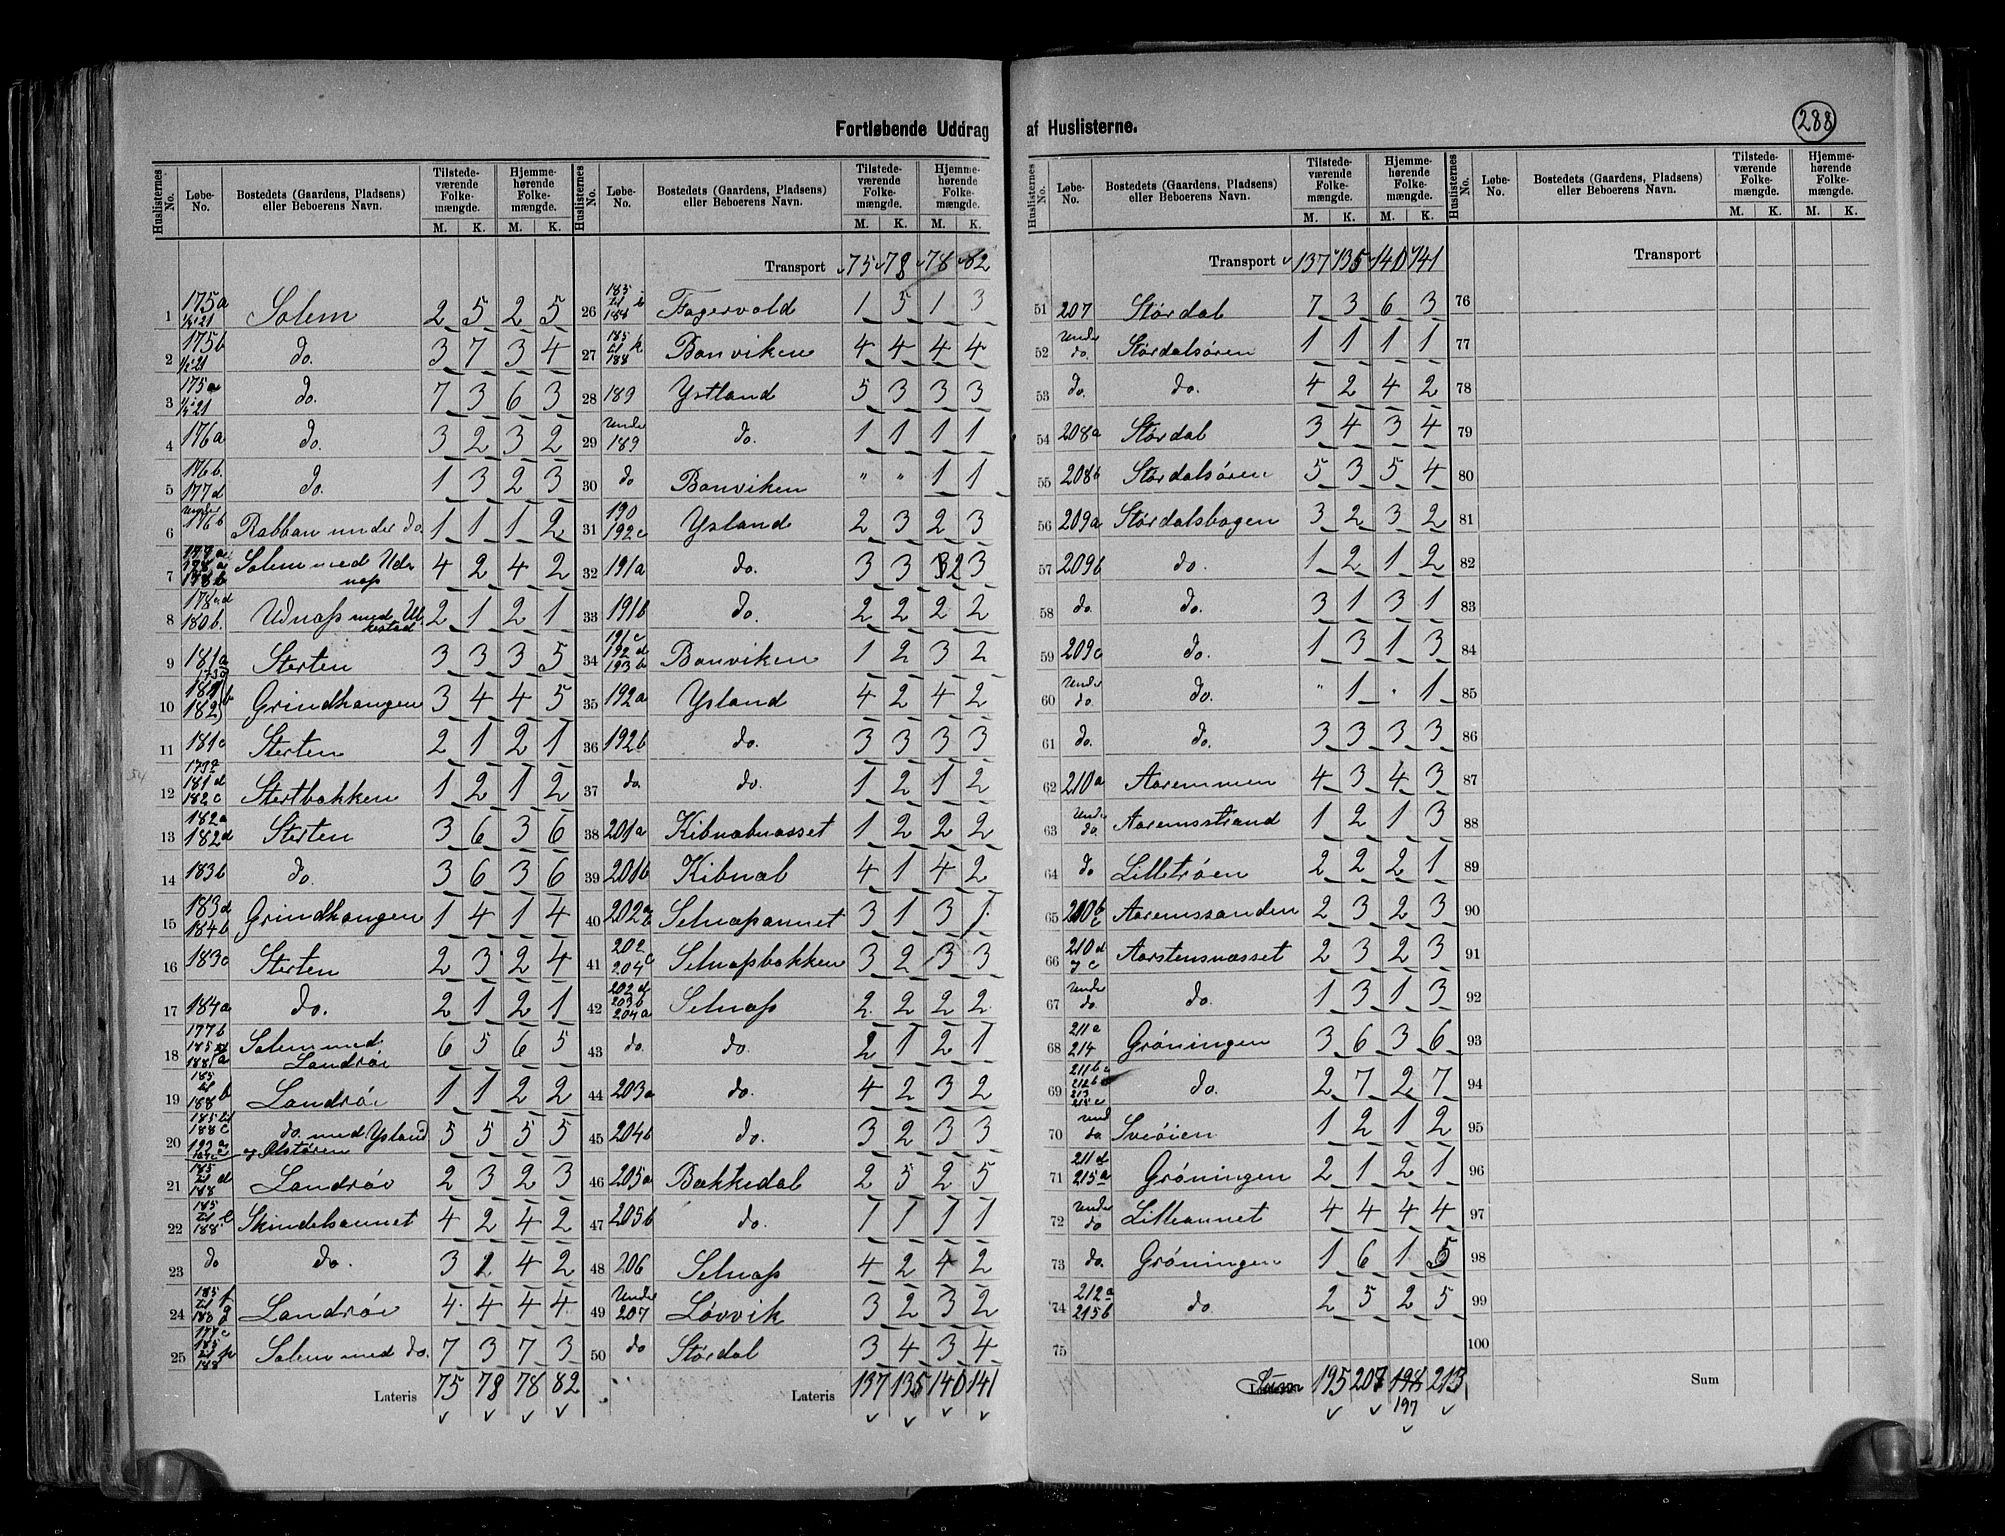 288
Fortløbende Uddrag af Huslisterne.
Huslisternes No. | Løbe-No. | Bostedets (Gaardens, Pladsens) eller Beboerens Navn. | Tilstedeværende Folkemængde. M. K. | Hjemmehørende Folkemængde. M. K.
1 175a 1/2 21 Solem 2 5 2 5
2 175b 1/2 21 do. 3 7 3 4
3 175a 1/2 21 do. 7 3 6 3
4 176a do. 3 2 3 2
5 176b. 177d do. 1 3 2 3
6 under 176b Rabban under do. 1 1 1 2
7 178a 178b Solem med Udnaß 4 2 4 2
8 180b. Udnaß med 2 1 2 1
9 181a Sterten 3 3 3 5
10 181b 182 Grindhaugen 3 4 4 5
11 181c Sterten 2 1 2 1
12 181d 182c Stertbakken 1 2 1 2
13 182a 182d Sterten 3 6 3 6
14 183b do. 3 6 3 6
15 183d 184b Grindhaugen 1 4 1 4
16 183c Sterten 2 3 2 4
17 184a do. 2 1 2 1
18 177b 185 til 188a Solem med Landrøi 6 5 6 5
19 185 til 188b Landrøi 1 1 2 2
20 185 til 188c do. med Ysland og Olstøren 5 5 5 5
21 185 til 188d Landrøi 2 3 2 3
22 185 til 188e Skindelsaunet 4 2 4 2
23 do do. 3 2 4 2
24 185 til 188 f g Landrøi 4 4 4 4
25 177c 185 til 188 p Solem med do. 7 3 7 3
Lateris 75 78 78 82
Transport 75 78 78 82
26 185 til 188 h Fagervold 1 5 1 3
27 185 til 188 k Bonviken 4 4 4 4
28 189 Ystland 5 3 3 3
29 Under 189 do. 1 1 1 1
30 do Bonviken " " 1 1
31 190 192c Ysland 2 3 2 3
32 191a do. 3 3 2 3
33 191b do. 2 2 2 2
34 191c 192d 193b Bonviken 1 2 3 2
35 192a Ysland 4 2 4 2
36 192b do. 3 3 3 3
37 do. do. 1 2 1 2
38 201a Kibnabnæsset 1 2 2 2
39 201b Kibnab 4 1 4 2
40 202a Selnaßaunet 3 1 3 1
41 202c 204c Selnaßbakken 3 2 3 3
42 202d 203b 204a Selnaß 2 2 2 2
43 do. do. 2 1 2 1
44 203a do. 4 2 3 2
45 204b do. 3 2 3 3
46 205a Bækkedal 2 5 2 5
47 205b do. 1 1 1 1
48 206 Selnaß 4 2 4 2
49 Under 207 Lovvik 3 2 3 2
50 do Størdal 3 4 3 4
Lateris 137 135 140 141
Huslisternes No. | Løbe-No. | Bostedets (Gaardens, Pladsens) eller Beboerens Navn. | Tilstedeværende Folkemængde. M. K. | Hjemmehørende Folkemængde. M. K.
Transport 137 135 140 141
51 207 Størdal 7 3 6 3
52 Under do. Størdalsøren 1 1 1 1
53 do. do. 4 2 4 2
54 208a Størdal 3 4 3 4
55 208b Størdalsøren 5 3 5 4
56 209a Størdalsbogen 3 2 3 2
57 209b do. 1 2 1 2
58 do. do. 3 1 3 1
59 209c do. 1 3 1 3
60 Under do. do. " 1 " 1
61 do. do. 3 3 3 3
62 210a Aaremmen 4 3 4 3
63 Under do. Aaremsstrand 1 2 1 3
64 do Lilletrøen 2 2 2 1
65 210b c Aaremssanden 2 3 2 3
66 210d Aarstensnæsset 2 3 2 3
67 Under do. do. 1 3 1 3
68 211a 214 Grøningen 3 6 3 6
69 211b 212b 213 215c do. 2 7 2 7
70 und do. Sveøien 1 2 1 2
71 211d 215a Grøningen 2 1 2 1
72 Under do Lilleaunet 4 4 4 4
73 do. Grøningen 1 6 1 5
74 212a 215b do 2 5 2 5
75
195 207 198 213
197
Transport
76
77
78
79
80
81
82
83
84
85
86
87
88
89
90
91
92
93
94
95
96
97
98
99
100
Sum